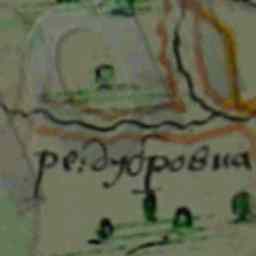 ре: дубровна